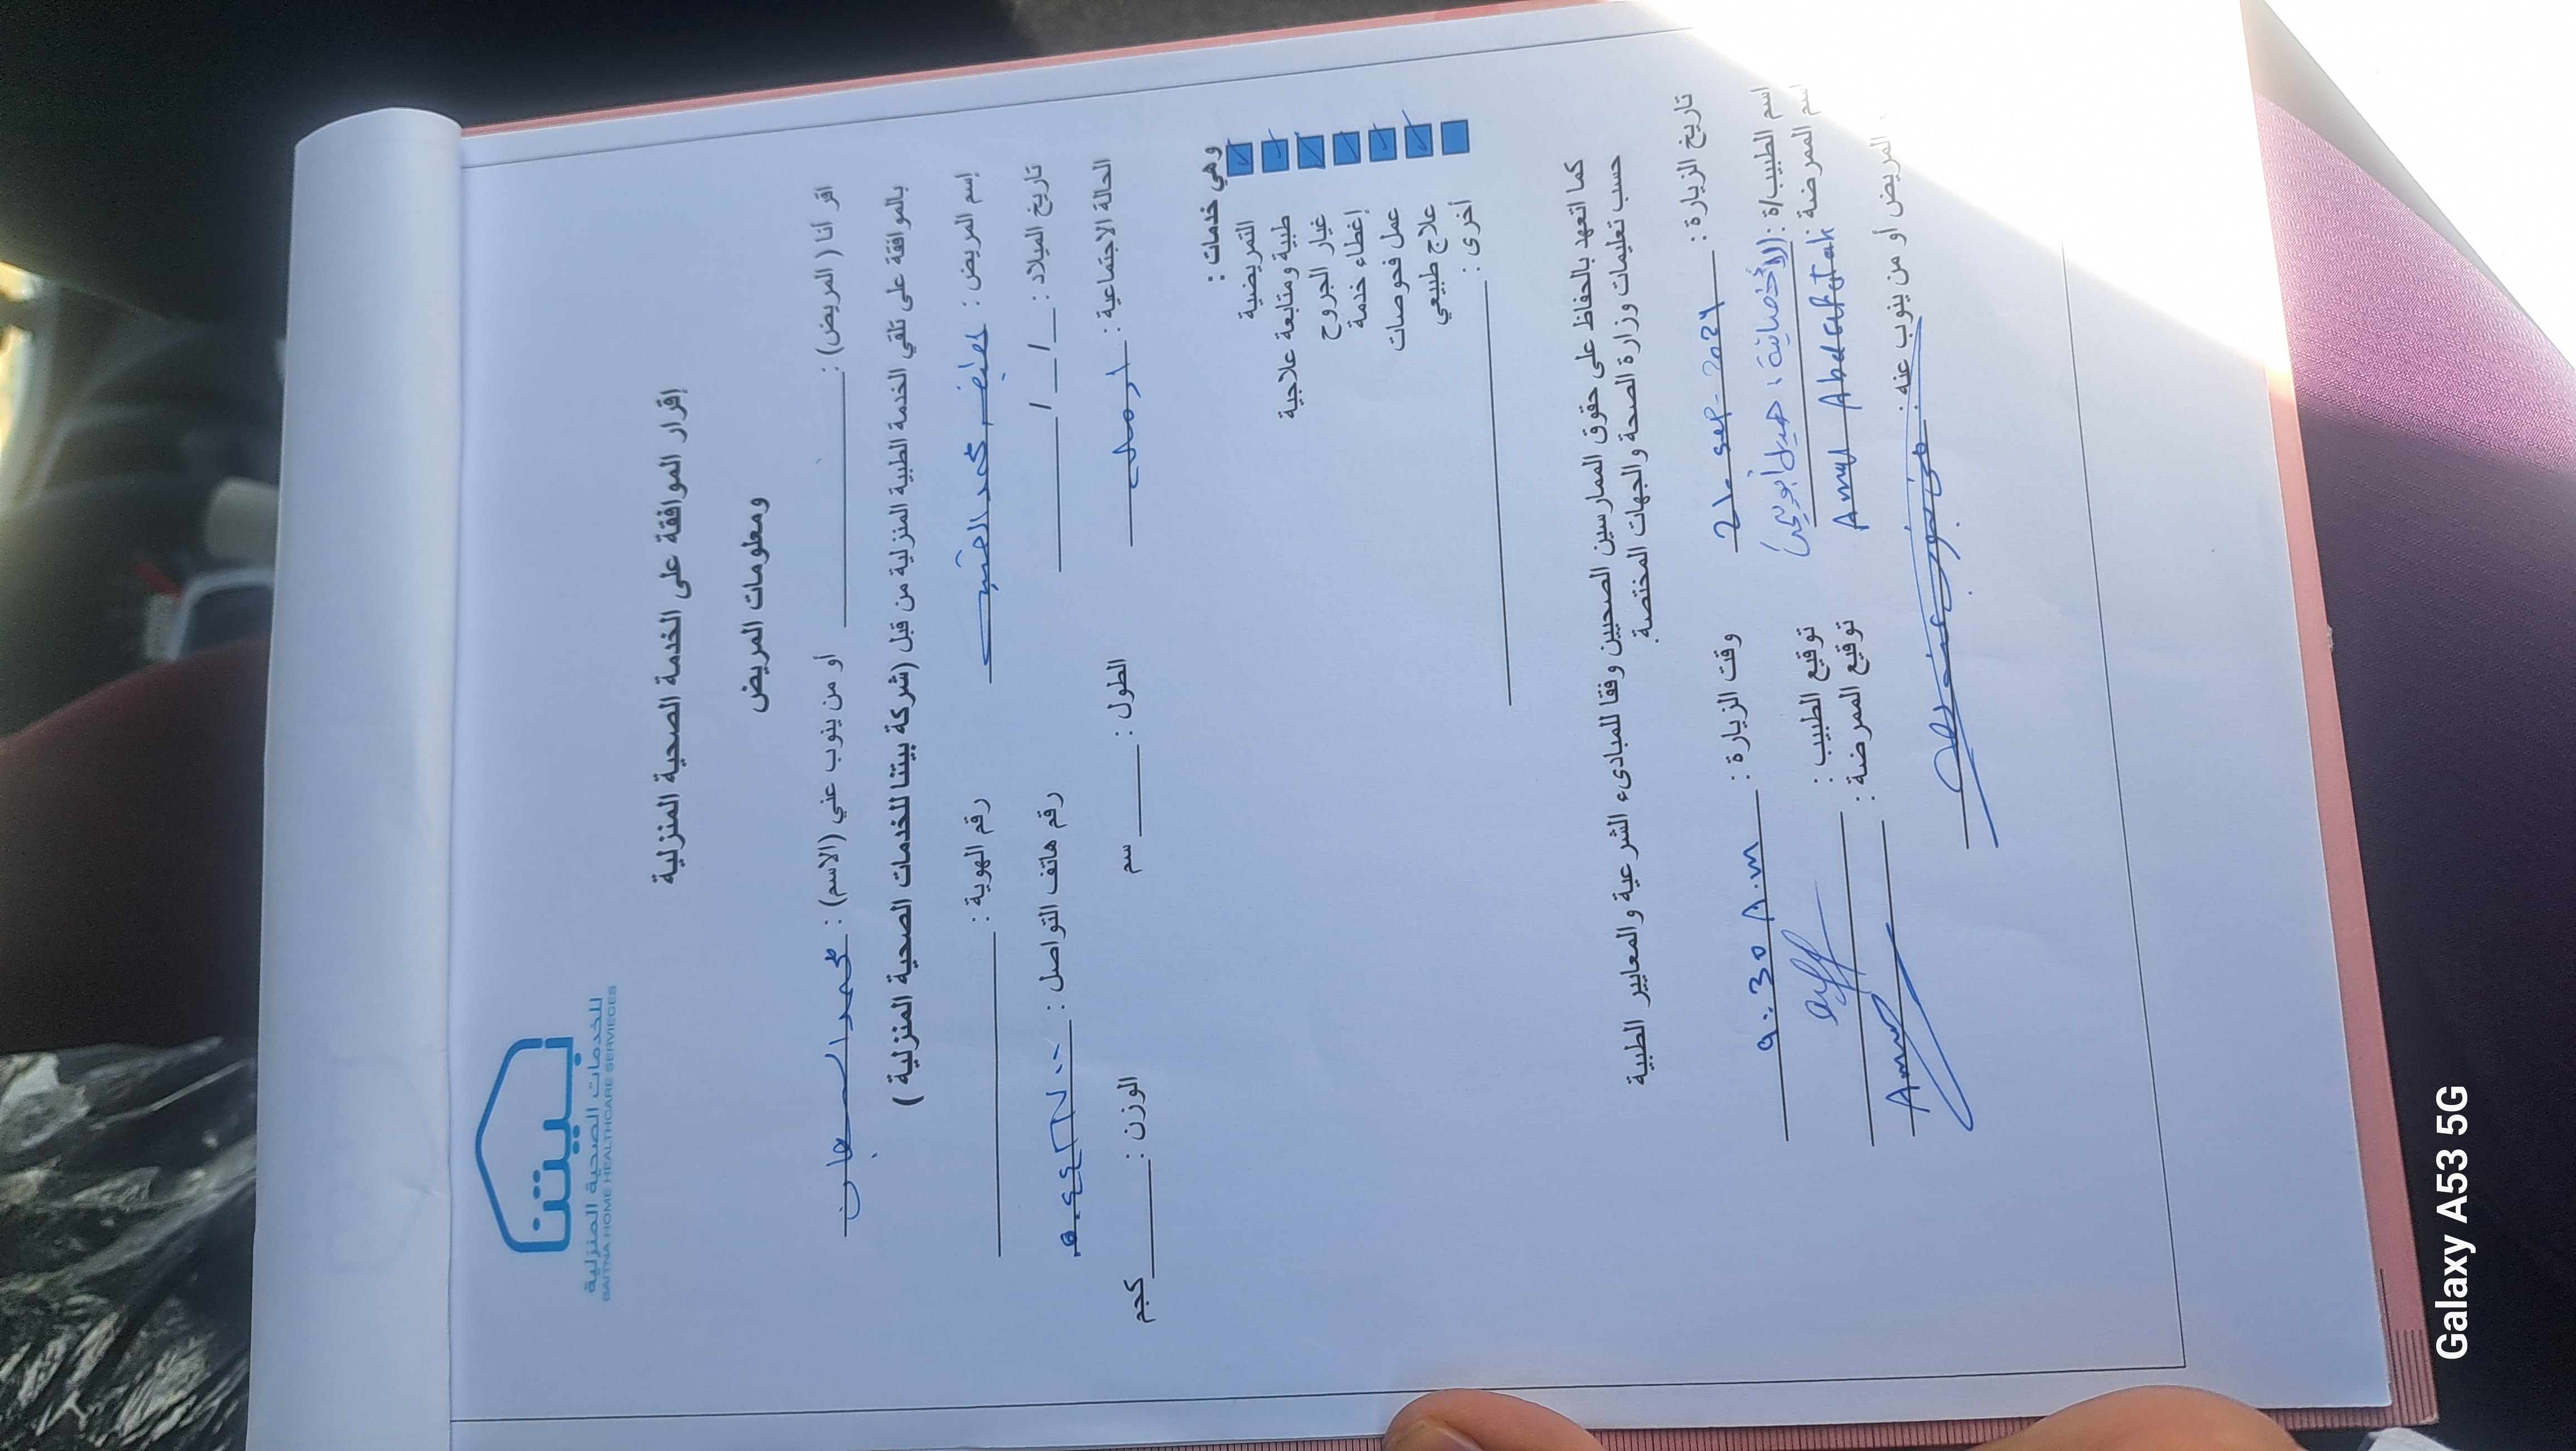 بيتنا
للخدمات الصحية المنزلية
BAITNA HOME HEALTHCARE SERVIECES
إقرار الموافقة على الخدمة الصحية المنزلية
ومعلومات المريض
اقر أنا ( المريض) : أو من ينوب عني (الاسم) : محمد
بالموافقة على تلقي الخدمة الطبية المنزلية من قبل (شركة بيتنا للخدمات الصحية المنزلية )
إسم المريض : محمد رقم الهوية :
تاريخ الميلاد : / / رقم هاتف التواصل :
الحالة الاجتماعية : الطول : سم الوزن : كجم
وهي خدمات :
التمريضية
طبية ومتابعة علاجية
غيار الجروح
إغطاء خدمة
عمل فحوصات
علاج طبيعي
أخرى :
كما اتعهد بالحفاظ على حقوق الممارسين الصحيين وفقا للمبادىء الشرعية والمعايير الطبية
حسب تعليمات وزارة الصحة والجهات المختصة
تاريخ الزيارة : 21 - sep - 2024 وقت الزيارة : 9:30 A.m
اسم الطبيب/ة : الأخصائية توقيع الطبيب :
اسم الممرضة : Amal توقيع الممرضة : Amal
المريض أو من ينوب عنه :
Galaxy A53 5G